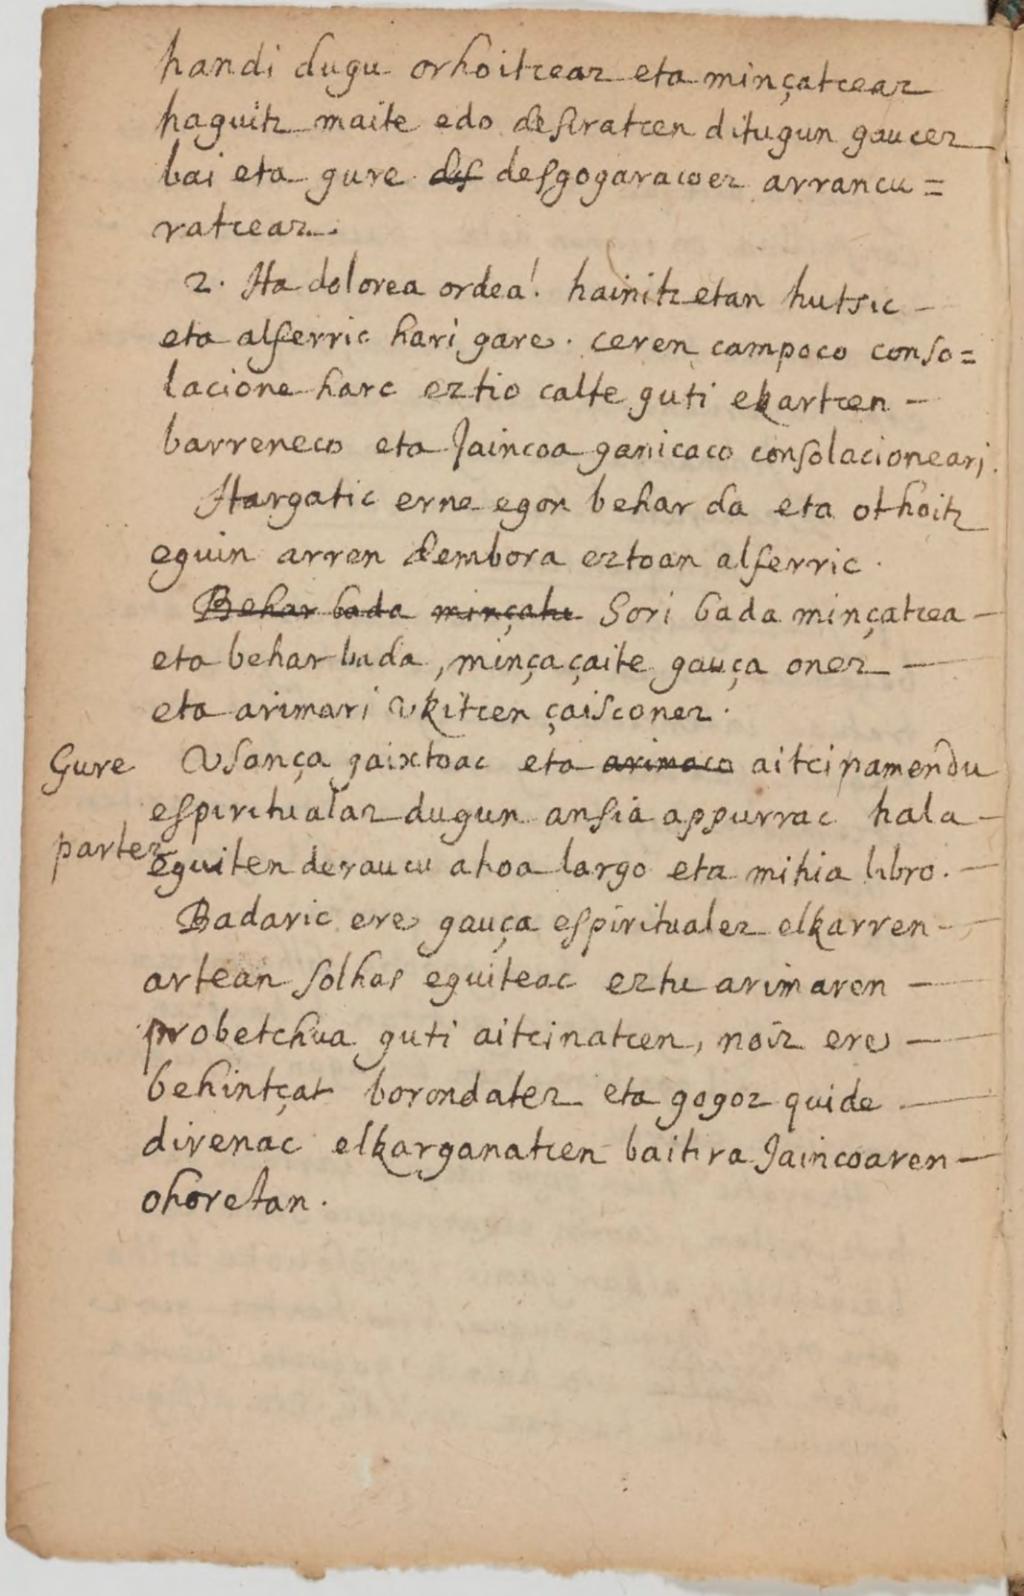 handi dugu orhoitceaz eta minçatceaz
haguitz maite edo desiratcen ditugun gaucez
bai eta gure des desgogaracoez arrancu=
ratceaz.
2. Ha dolorea ordea! hainitzetan hutsic
eta alferric hari gare. ceren campoco conso=
lacione harc eztio calte guti ekartcen
barreneco eta Jaincoa ganicaco consolacioneari.
Hargatic erne egon behar da eta othoitz
eguin arren dembora eztoan alferric.
Behar bada minçatu Sori bada minçatcea
eta behar bada, minça çaite gauça onez
eta arimari ukitcen çaisconez.
Gure Usança gaixtoac eta arimaco aitcinamendu
espiritualaz dugun ansia appurrac hala
partez eguiten deraucu ahoa largo eta mihia libro.
Badaric ere gauça espiritualez elkarren
artean solhas eguiteac eztu arimaren
probetchua guti aitcinatcen, noiz ere
behintçat borondatez eta gogoz quide
direnac elkarganatcen baitira Jaincoaren
ohoretan.